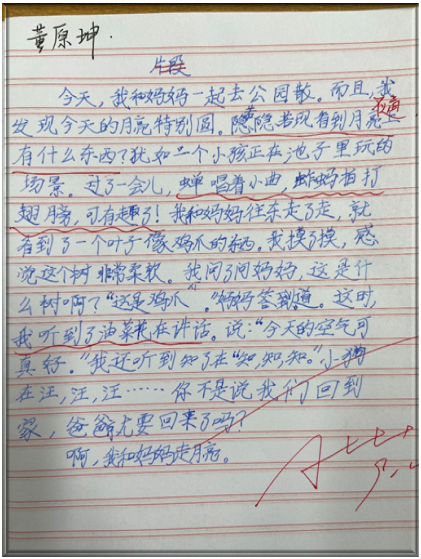 黄原坤.
片段
今天,我和妈妈一起去公园散。而且,我
发现今天的月亮特别圆。隐隐若现看到月亮上
有什么东西?犹如一个小孩正在池子里玩的
场景。过了一会儿,蝉唱着小曲,蚱蚂拍打
翅膀,可有趣了!我和妈妈往东走了走,就
看到了一个叶子像鸡爪的东西。我摸了摸,感
觉这个树非常柔软。我问了问妈妈,这是什
么树啊?“这是鸡爪。”妈妈答到道。这时,
我听到了油菜花在讲话。说:“今天的空气可
真好。”我还听到知了在“知,知,知。”小狗
在汪,汪,汪……你不是说我们回到
家,爸爸尤要回来了吗?
啊,我和妈妈走月亮。
A+++